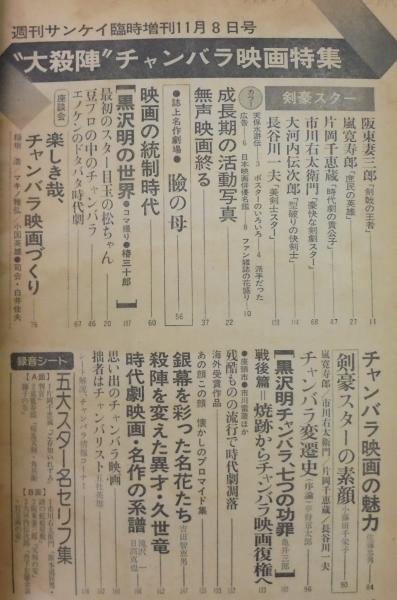 週刊サンケイ臨時増刊11月8日号
"大殺陣"チャンバラ映画特集
剣豪スター
阪東妻三郎「剣戟の王者」 11
嵐寛寿郎「庶民の英雄」 27
片岡千恵蔵「時代劇の貴公子」 47
市川右太衛門「豪快な剣劇スター」 68
大河内伝次郎「型破りの快剣士」
長谷川一夫「美剣士スター」
カラー
天保水滸伝…3 ポスターのいろいろ…4 派手だった
広告…6 日本映画俳優名鑑…8 ファン雑誌の花盛り…10
成長期の活動写真 22
無声映画終る 37
●誌上名作劇場●
瞼の母 56
映画の統制時代 60
【黒沢明の世界】●コマ撮り●椿三十郎
最初のスター目玉の松ちゃん 20
豆フロの中のチャンバラ 46
エノケンのドタバタ時代劇 67
座談会
楽しき哉、
チャンバラ映画づくり 76
稲垣 浩/マキノ雅弘/小国英雄●司会・白井佳夫
チャンバラ映画の魅力 佐藤忠男 84
剣豪スターの素顔 小藤田千栄子 90
嵐寛寿郎/市川右太衛門/片岡千恵蔵/長谷川一夫
チャンバラ変遷史 〈序論〉 96
【黒沢明チャンバラ、七つの功罪】
戦後篇=焼跡からチャンバラ映画復権へ
●座頭市●市川雷蔵ほか
残酷ものの流行で時代劇凋落
海外受賞作品
あの顔この顔 懐かしのブロマイド集
銀幕を彩った名花たち 吉田智恵男
殺陣を変えた異才・久世竜
時代劇映画・名作の系譜 滝沢 一 日高真也
思い出のチャンバラ映画
拙者はチャンバリスト 五社英雄
シート解説/チャンバラ情報コーナー
録音シート
五大スター名セリフ集
【A面】
【B面】